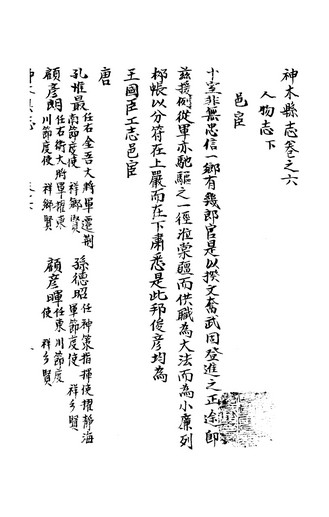 神木縣志卷之六
人物志下
邑宦
十室非無忠信一鄉有幾郎官是以揆文奮武固登進之正途即
茲援例從軍亦馳驅之一徑涖蒙疆而供職為大法而為小廉列
郡帳以分符在上嚴而在下肅悉是此邦俊彥均為
王國臣工志邑宦
唐
孔惟最 任右金吾大將軍遷荆南節度使 祥鄉賢 孫德昭 任神策指揮使擢靜海軍節度使 祥鄉賢
顧彥朗 任右衛大將軍擢東川節度使 祥鄉賢 顧彥暉 任東川節度使 祥鄉賢